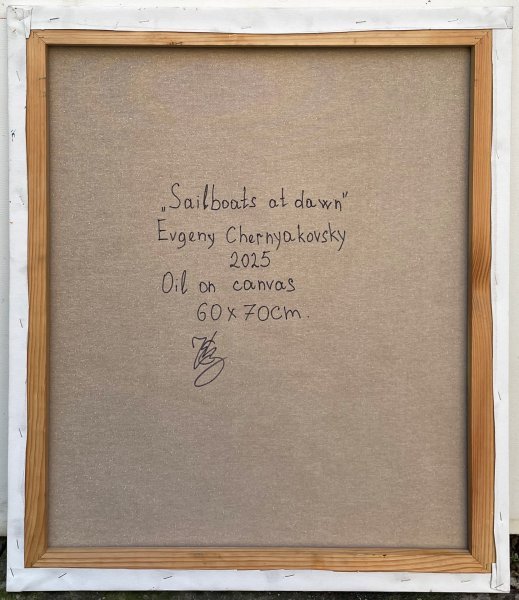 „Sailboats at dawn"
Evgeny Chernyakovsky
2025
Oil on canvas
60 x 70cm.